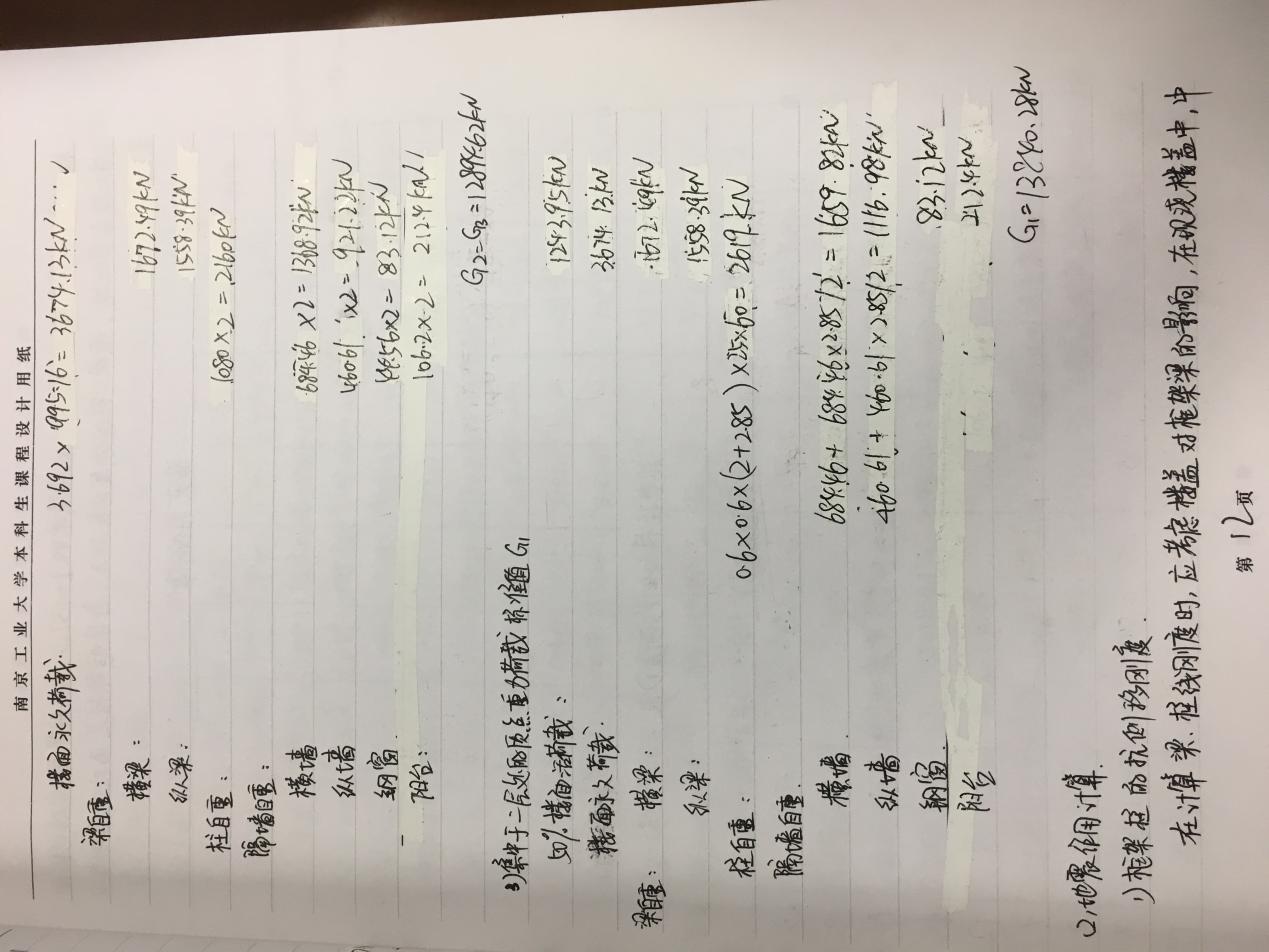 南京工业大学本科生课程设计用纸
楼面永久荷载: 3.692×995.16=3674.13kN
梁自重:
横梁: 1672.49kN
纵梁: 1558.39kN
柱自重: 1080×2=2160kN
隔墙自重:
横墙 684.46×2=1368.92kN
纵墙 460.61×2=921.22kN
钢窗 ×2=83.12kN
阳台: 106.2×2=212.4kN
G2=G3=12894.62kN
3)集中于二层处的质点重力荷载标准值G1
50%楼面活荷载: 1243.95kN
楼面永久荷载: 3674.13kN
梁自重: 横梁: 1672.49kN
纵梁: 1558.39kN
柱自重: 0.6×0.6×(2+2.85)×25×60=2619kN
隔墙自重:
横墙 684.46+684.46×2.85/2=1659.82kN
纵墙 460.61+460.61×2.85/2=1116.98kN
钢窗 83.12kN
阳台 212.4kN
G1=13840.28kN
(2)地震作用计算.
1)框架柱的抗侧移刚度.
在计算梁、柱线刚度时,应考虑楼盖对框架梁的影响,在现浇楼盖中,中
第12页